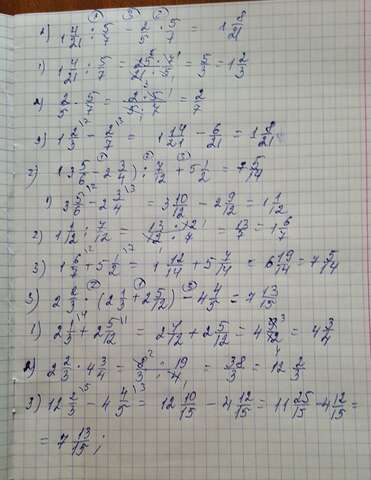 1) 1 4/21 : 5/7 - 2/5 · 5/7 = 1 8/21
1) 1 4/21 : 5/7 = 25/21 · 7/5 = 5/3 = 1 2/3
2) 2/5 · 5/7 = 2·5/5·7 = 2/7
3) 1 2/3 - 2/7 = 1 14/21 - 6/21 = 1 8/21
2) (3 5/6 - 2 3/4) : 7/12 + 5 1/2 = 7 5/14
1) 3 5/6 - 2 3/4 = 3 10/12 - 2 9/12 = 1 1/12
2) 1 1/12 : 7/12 = 13/12 · 12/7 = 13/7 = 1 6/7
3) 1 6/7 + 5 1/2 = 1 12/14 + 5 7/14 = 6 19/14 = 7 5/14
3) 2 2/3 · (2 1/3 + 2 5/12) - 4 4/5 = 7 13/15
1) 2 1/3 + 2 5/12 = 2 4/12 + 2 5/12 = 4 9/12 = 4 3/4
2) 2 2/3 · 4 3/4 = 8/3 · 19/4 = 38/3 = 12 2/3
3) 12 2/3 - 4 4/5 = 12 10/15 - 4 12/15 = 11 25/15 - 4 12/15 =
= 7 13/15 ;